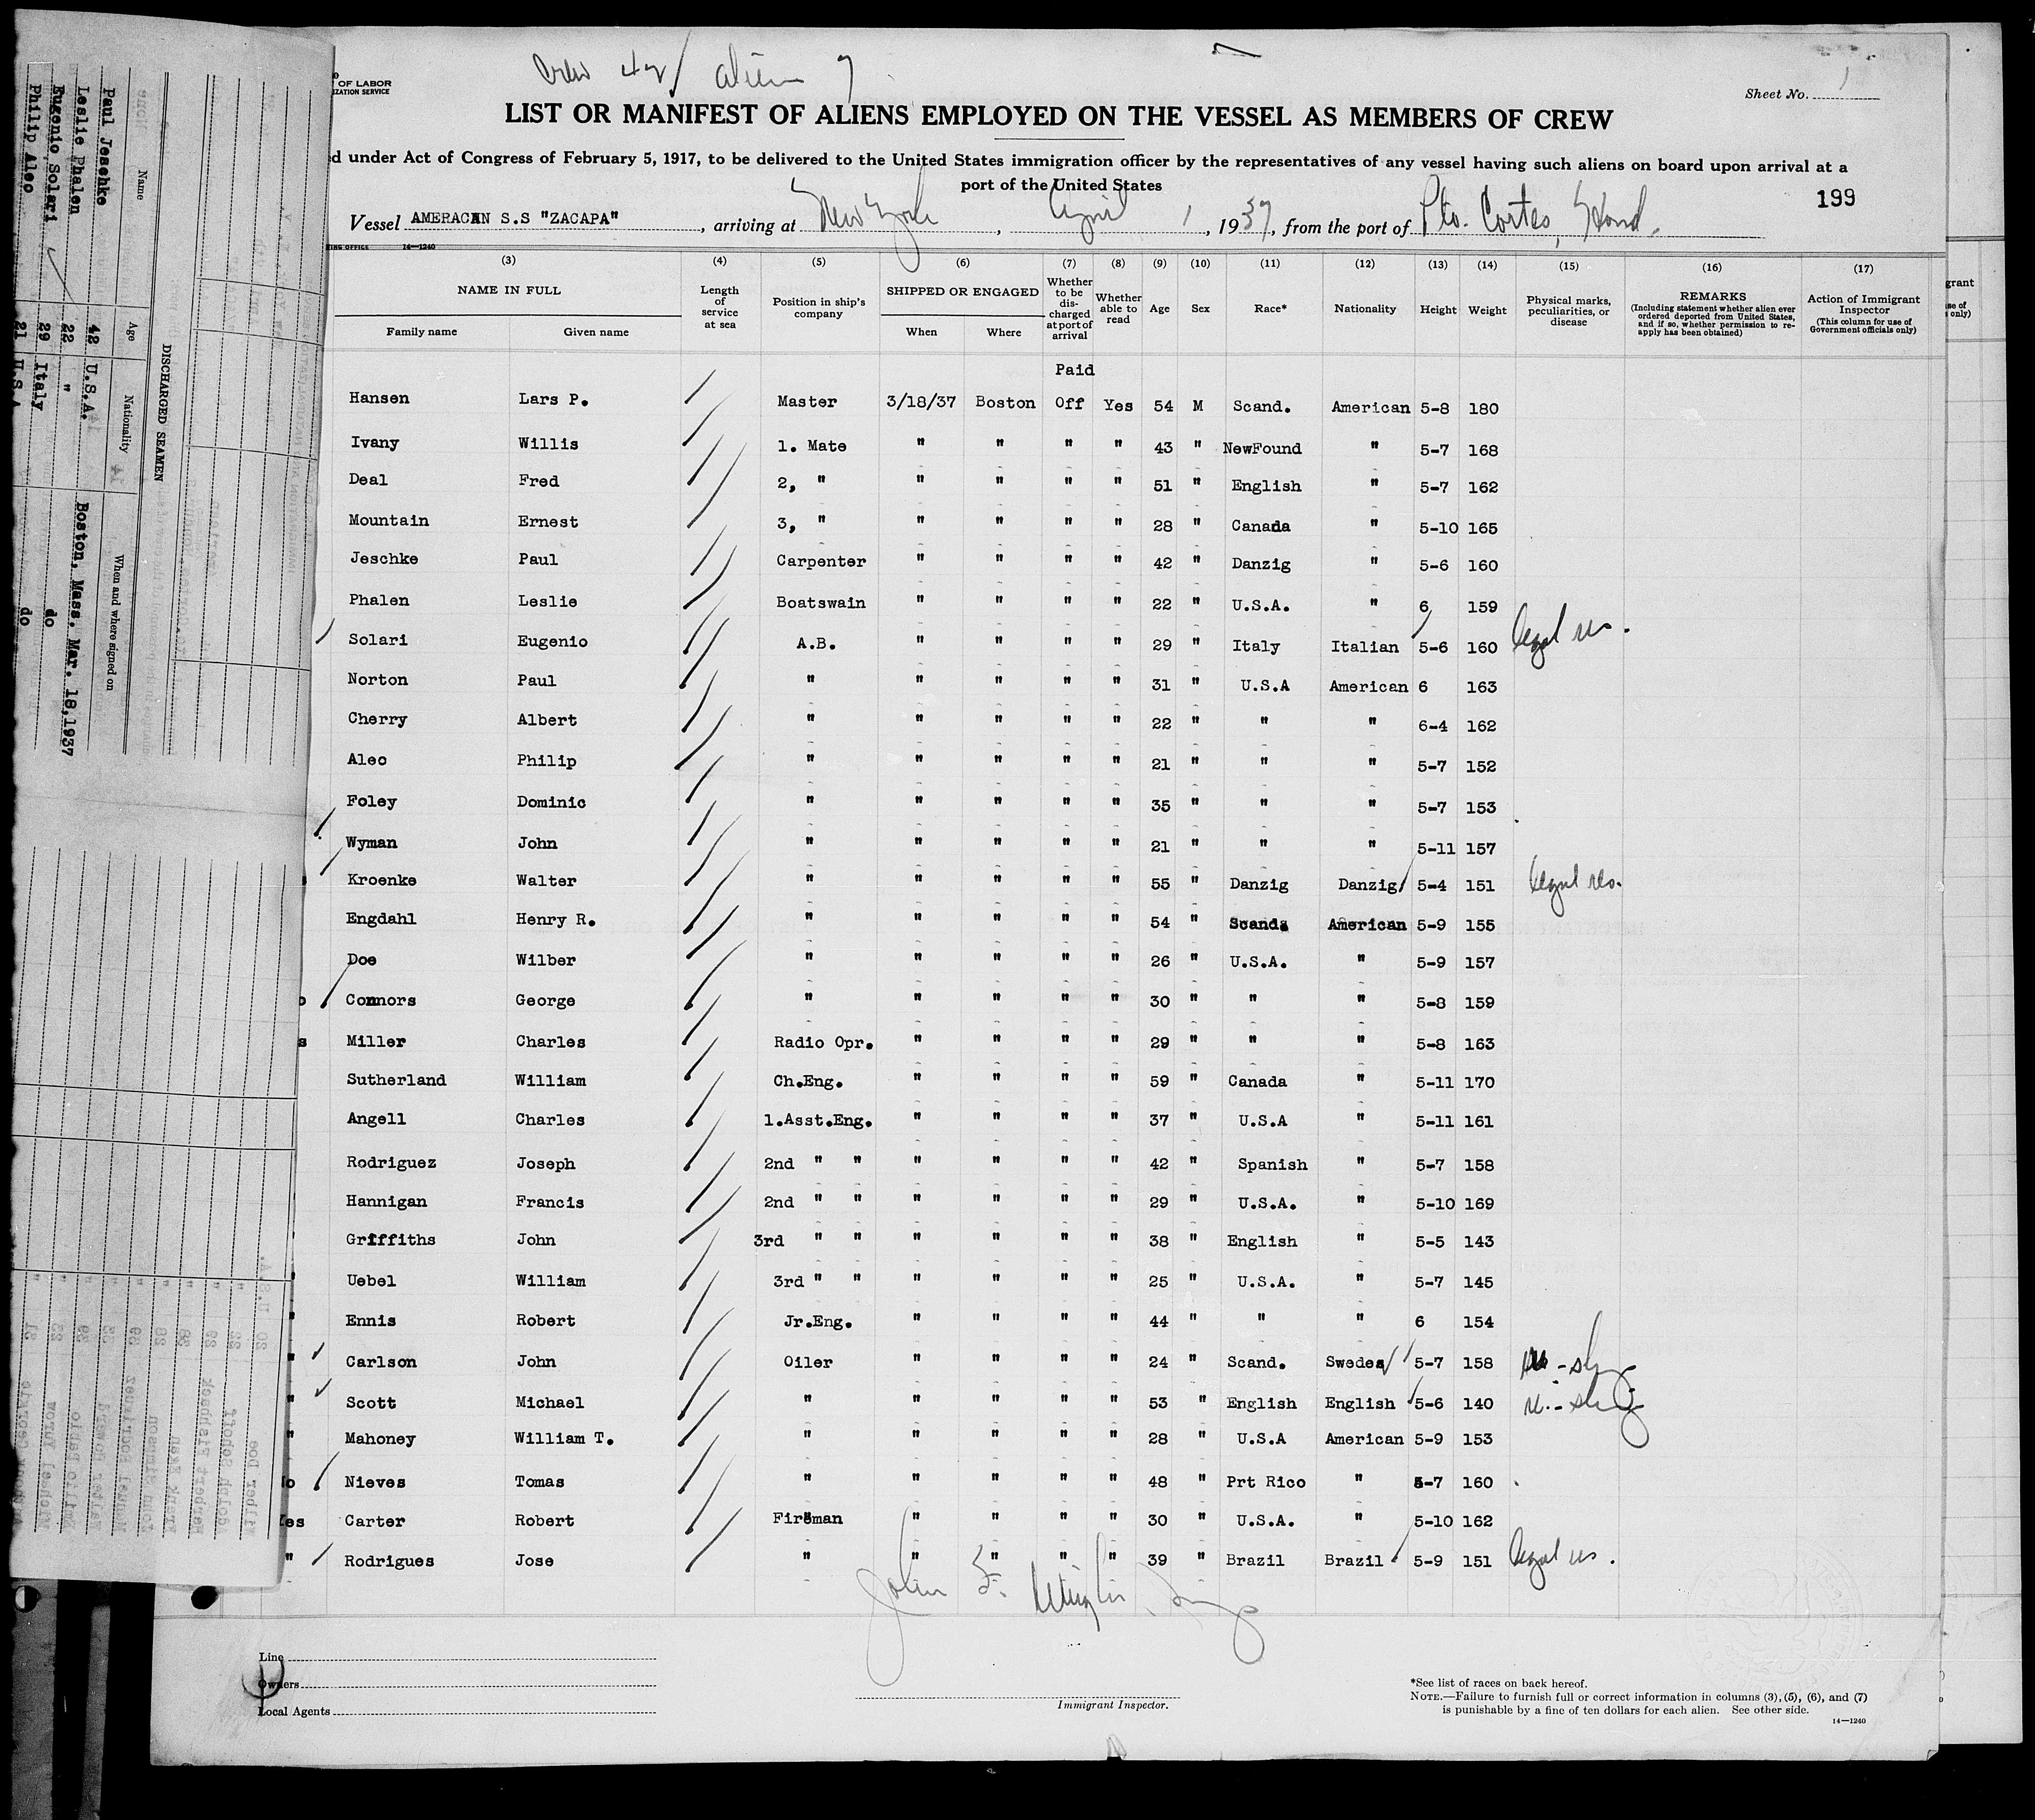 Crew 42 / alien 7
OF LABOR
IZATION SERVICE
Sheet No. 1
LIST OR MANIFEST OF ALIENS EMPLOYED ON THE VESSEL AS MEMBERS OF CREW
d under Act of Congress of February 5, 1917, to be delivered to the United States immigration officer by the representatives of any vessel having such aliens on board upon arrival at a
port of the United States
199
Vessel AMERACAN S.S "ZACAPA", arriving at New York, April 1, 1937, from the port of Pto. Cortes, Hond.
ING OFFICE 14—1240
(3) (4) (5) (6) (7) (8) (9) (10) (11) (12) (13) (14) (15) (16) (17)
NAME IN FULL
Family name Given name
Length of service at sea
Position in ship's company
SHIPPED OR ENGAGED
When Where
Whether to be discharged at port of arrival
Whether able to read
Age Sex Race* Nationality Height Weight
Physical marks, peculiarities, or disease
REMARKS
(Including statement whether alien ever ordered deported from United States, and if so, whether permission to re-apply has been obtained)
Action of Immigrant Inspector
(This column for use of Government officials only)
Paid
Hansen Lars P. Master 3/18/37 Boston Off Yes 54 M Scand. American 5-8 180
Ivany Willis 1. Mate " " " " 43 " NewFound " 5-7 168
Deal Fred 2, " " " " " 51 " English " 5-7 162
Mountain Ernest 3, " " " " " 28 " Canada " 5-10 165
Jeschke Paul Carpenter " " " " 42 " Danzig " 5-6 160
Phalen Leslie Boatswain " " " " 22 " U.S.A. " 6 159
Solari Eugenio A.B. " " " " 29 " Italy Italian 5-6 160 legal res.
Norton Paul " " " " " 31 " U.S.A American 6 163
Cherry Albert " " " " " 22 " " " 6-4 162
Aleo Philip " " " " " 21 " " " 5-7 152
Foley Dominic " " " " " 35 " " " 5-7 153
Wyman John " " " " " 21 " " " 5-11 157
Kroenke Walter " " " " " 55 " Danzig Danzig 5-4 151 legal res.
Engdahl Henry R. " " " " " 54 " Scand. American 5-9 155
Doe Wilber " " " " " 26 " U.S.A. " 5-9 157
Connors George " " " " " 30 " " " 5-8 159
Miller Charles Radio Opr. " " " " 29 " " " 5-8 163
Sutherland William Ch.Eng. " " " " 59 " Canada " 5-11 170
Angell Charles 1.Asst.Eng. " " " " 37 " U.S.A " 5-11 161
Rodriguez Joseph 2nd " " " " " " 42 " Spanish " 5-7 158
Hannigan Francis 2nd " " " " " " 29 " U.S.A. " 5-10 169
Griffiths John 3rd " " " " " " 38 " English " 5-5 143
Uebel William 3rd " " " " " " 25 " U.S.A. " 5-7 145
Ennis Robert Jr.Eng. " " " " 44 " " " 6 154
Carlson John Oiler " " " " 24 " Scand. Swedes 5-7 158
Scott Michael " " " " " 53 " English English 5-6 140
Mahoney William T. " " " " " 28 " U.S.A American 5-9 153
Nieves Tomas " " " " " 48 " Prt Rico " 5-7 160
Carter Robert Fireman " " " " 30 " U.S.A. " 5-10 162
Rodrigues Jose " " " " " 39 " Brazil Brazil 5-9 151 legal res.
John F.
Line
Owners
Local Agents
Immigrant Inspector.
*See list of races on back hereof.
NOTE.—Failure to furnish full or correct information in columns (3), (5), (6), and (7)
is punishable by a fine of ten dollars for each alien. See other side.
14—1240
DISCHARGED SEAMEN
Name Age Nationality When and where signed on
Paul Jeschke 42 U.S.A. Boston, Mass. Mar. 18,1937
Leslie Phalen 22 "
Eugenio Solari 29 Italy do
Philip Aleo 21 U.S.A do